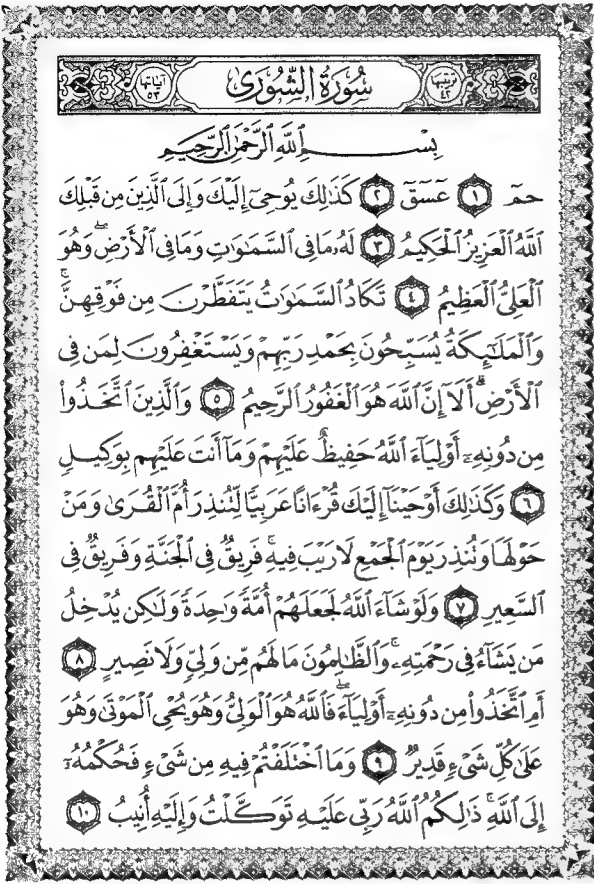 ترتيبها ٤٢ سُورَةُ الشُّورَىٰ آياتها ٥٣
بِسْمِ ٱللَّهِ ٱلرَّحْمَٰنِ ٱلرَّحِيمِ
حمٓ ۝١ عٓسٓقٓ ۝٢ كَذَٰلِكَ يُوحِىٓ إِلَيْكَ وَإِلَى ٱلَّذِينَ مِن قَبْلِكَ
ٱللَّهُ ٱلْعَزِيزُ ٱلْحَكِيمُ ۝٣ لَهُۥ مَا فِى ٱلسَّمَٰوَٰتِ وَمَا فِى ٱلْأَرْضِ ۖ وَهُوَ
ٱلْعَلِىُّ ٱلْعَظِيمُ ۝٤ تَكَادُ ٱلسَّمَٰوَٰتُ يَتَفَطَّرْنَ مِن فَوْقِهِنَّ ۚ
وَٱلْمَلَٰٓئِكَةُ يُسَبِّحُونَ بِحَمْدِ رَبِّهِمْ وَيَسْتَغْفِرُونَ لِمَن فِى
ٱلْأَرْضِ ۗ أَلَآ إِنَّ ٱللَّهَ هُوَ ٱلْغَفُورُ ٱلرَّحِيمُ ۝٥ وَٱلَّذِينَ ٱتَّخَذُوا۟
مِن دُونِهِۦٓ أَوْلِيَآءَ ٱللَّهُ حَفِيظٌ عَلَيْهِمْ وَمَآ أَنتَ عَلَيْهِم بِوَكِيلٍ
۝٦ وَكَذَٰلِكَ أَوْحَيْنَآ إِلَيْكَ قُرْءَانًا عَرَبِيًّا لِّتُنذِرَ أُمَّ ٱلْقُرَىٰ وَمَنْ
حَوْلَهَا وَتُنذِرَ يَوْمَ ٱلْجَمْعِ لَا رَيْبَ فِيهِ ۚ فَرِيقٌ فِى ٱلْجَنَّةِ وَفَرِيقٌ فِى
ٱلسَّعِيرِ ۝٧ وَلَوْ شَآءَ ٱللَّهُ لَجَعَلَهُمْ أُمَّةً وَٰحِدَةً وَلَٰكِن يُدْخِلُ
مَن يَشَآءُ فِى رَحْمَتِهِۦ ۚ وَٱلظَّٰلِمُونَ مَا لَهُم مِّن وَلِىٍّ وَلَا نَصِيرٍ ۝٨
أَمِ ٱتَّخَذُوا۟ مِن دُونِهِۦٓ أَوْلِيَآءَ ۖ فَٱللَّهُ هُوَ ٱلْوَلِىُّ وَهُوَ يُحْىِ ٱلْمَوْتَىٰ وَهُوَ
عَلَىٰ كُلِّ شَىْءٍ قَدِيرٌ ۝٩ وَمَا ٱخْتَلَفْتُمْ فِيهِ مِن شَىْءٍ فَحُكْمُهُۥٓ
إِلَى ٱللَّهِ ۚ ذَٰلِكُمُ ٱللَّهُ رَبِّى عَلَيْهِ تَوَكَّلْتُ وَإِلَيْهِ أُنِيبُ ۝١٠